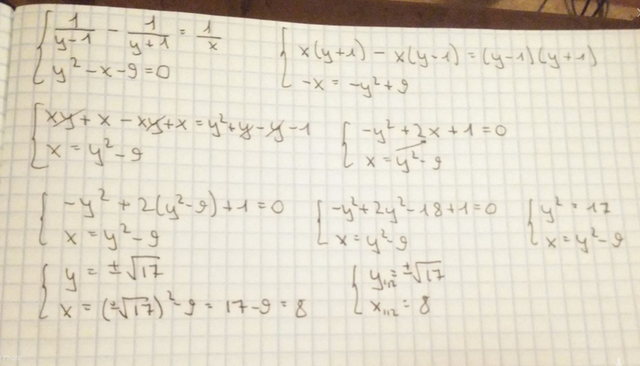 { 1/(y-1) - 1/(y+1) = 1/x
{ y² - x - 9 = 0
{ x(y+1) - x(y-1) = (y-1)(y+1)
{ -x = -y² + 9
{ xy + x - xy + x = y² + y - y - 1
{ x = y² - 9
{ -y² + 2x + 1 = 0
{ x = y² - 9
{ -y² + 2(y² - 9) + 1 = 0
{ x = y² - 9
{ -y² + 2y² - 18 + 1 = 0
{ x = y² - 9
{ y² = 17
{ x = y² - 9
{ y = ±√17
{ x = (±√17)² - 9 = 17 - 9 = 8
{ y₁,₂ = ±√17
{ x₁,₂ = 8